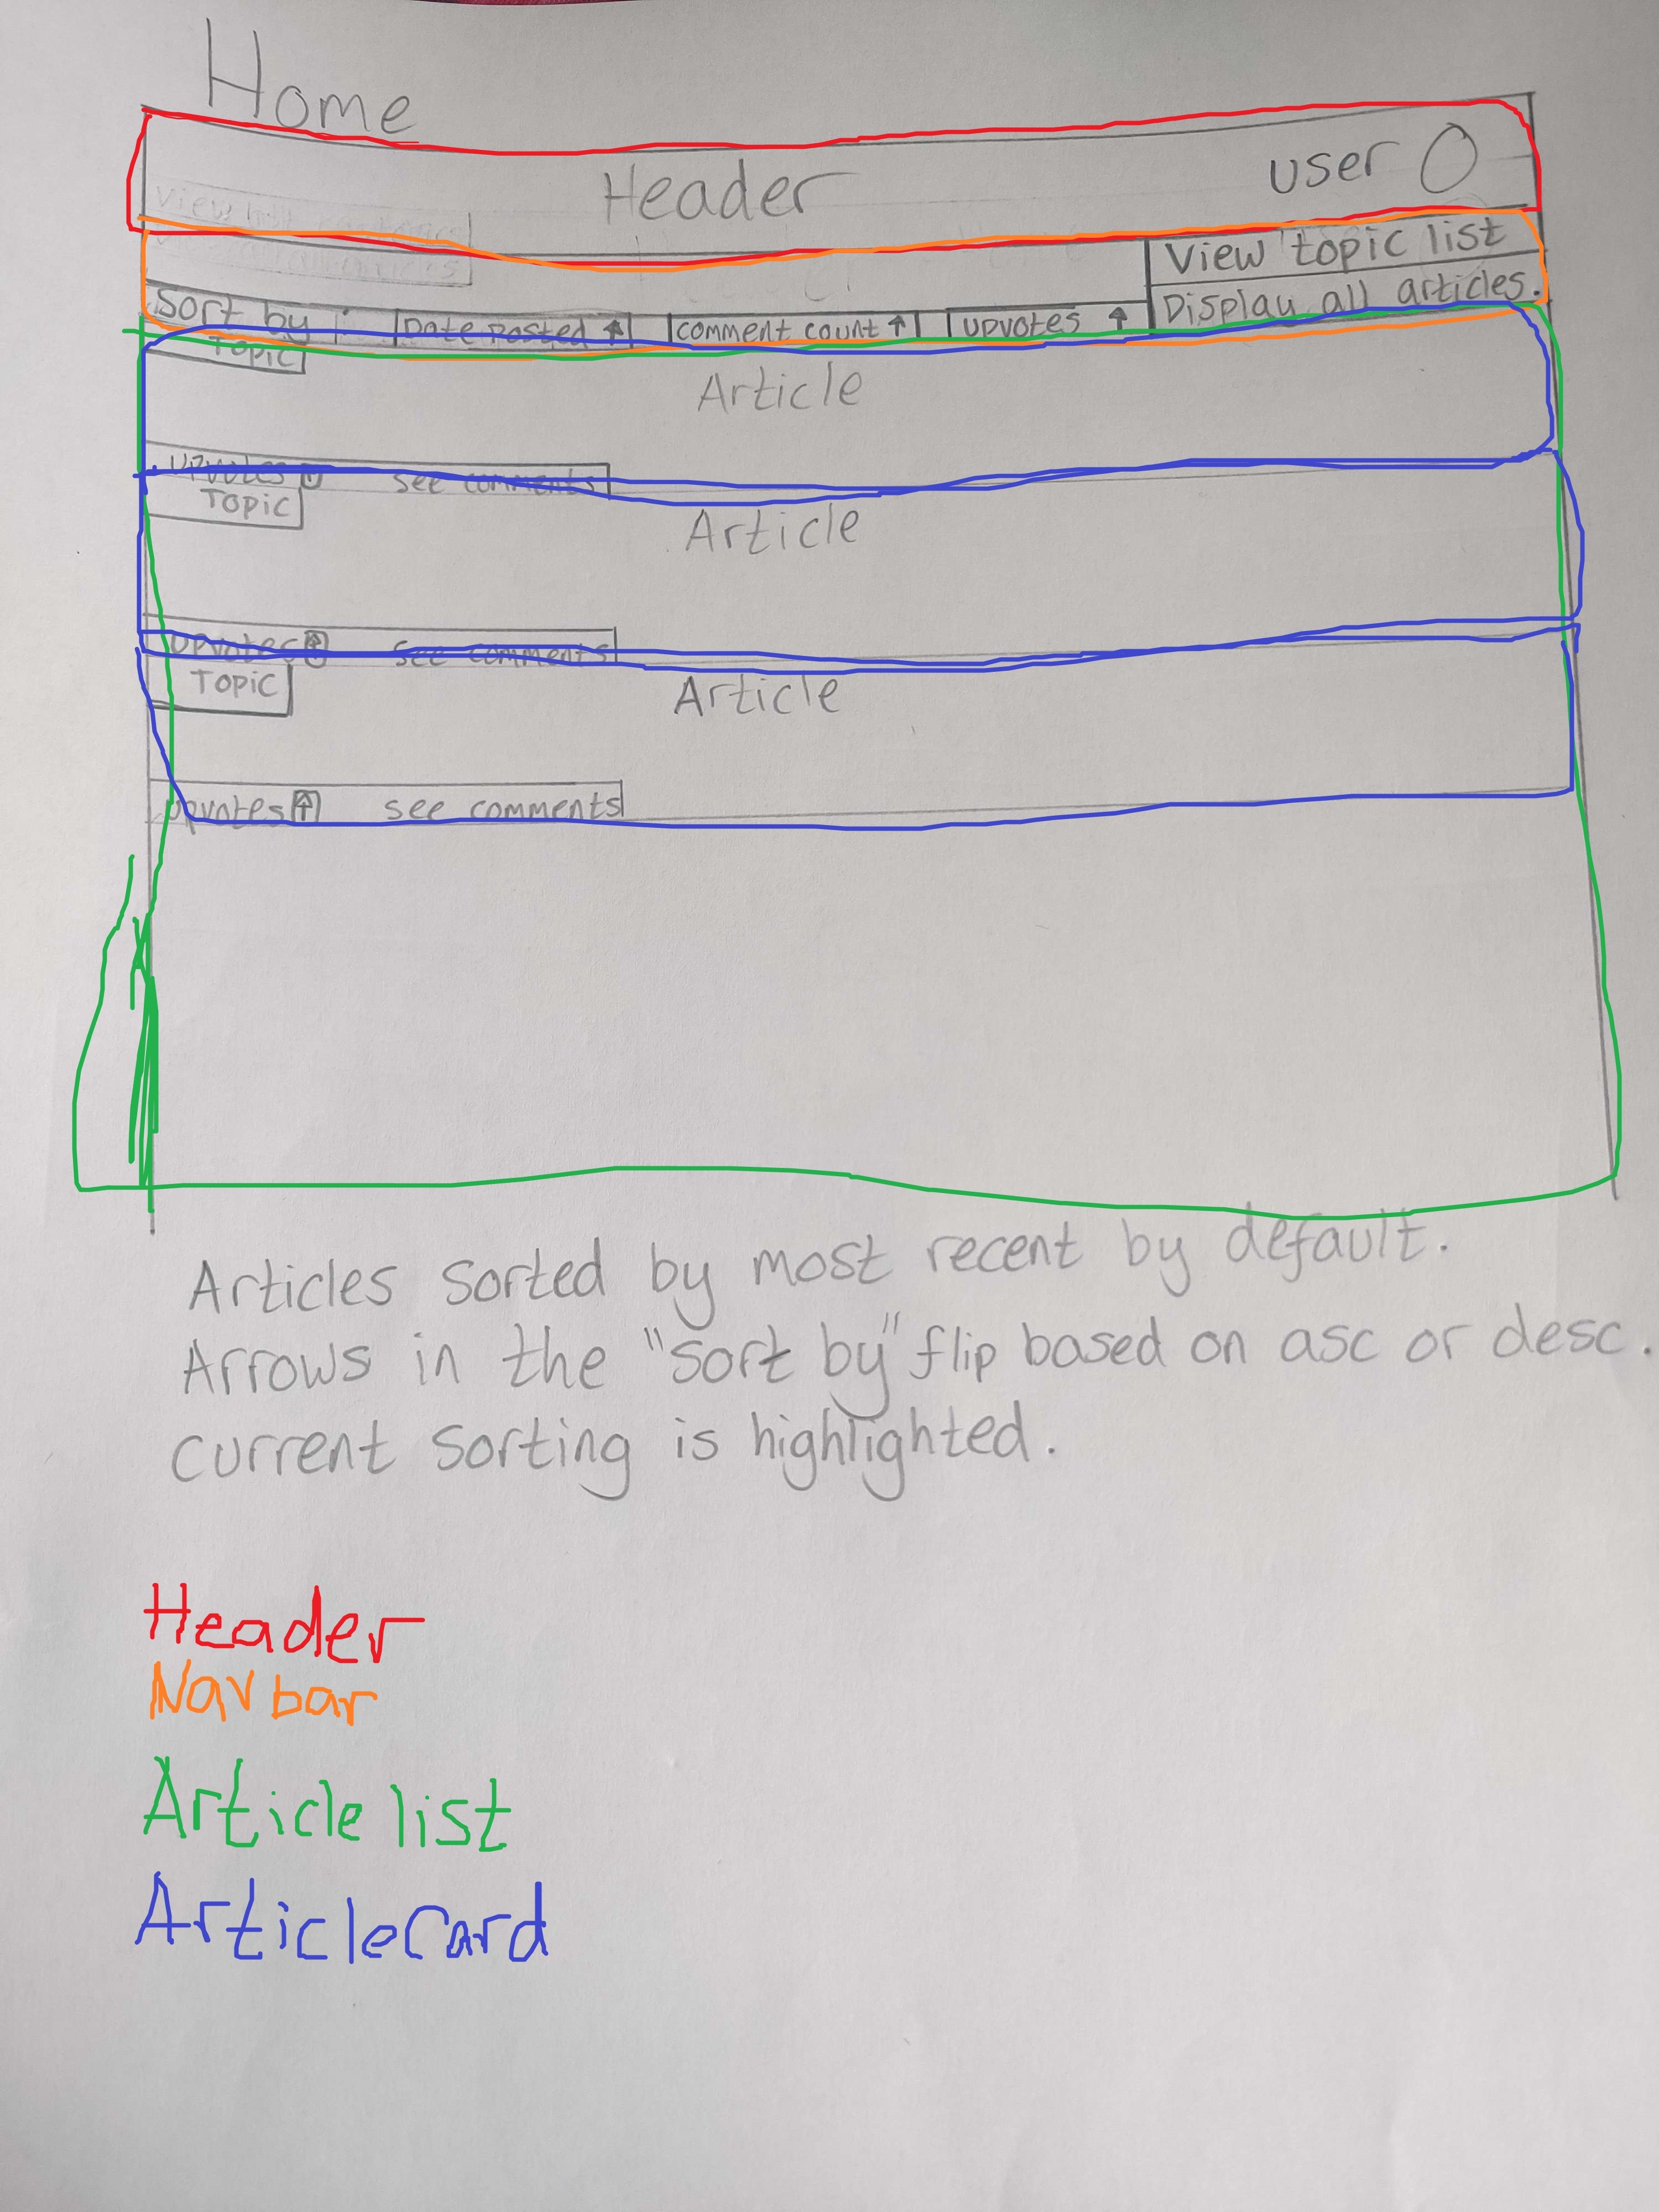 Home
Header
user
View topic list
Display all articles.
Sort by
Date Posted ↑
comment count ↑
upvotes ↑
Topic
Article
upvotes ↑ see comments
Topic
Article
upvotes ↑ see comments
Topic
Article
upvotes ↑ see comments
Articles sorted by most recent by default.
Arrows in the "sort by" flip based on asc or desc.
current sorting is highlighted.
Header
Navbar
Article list
ArticleCard